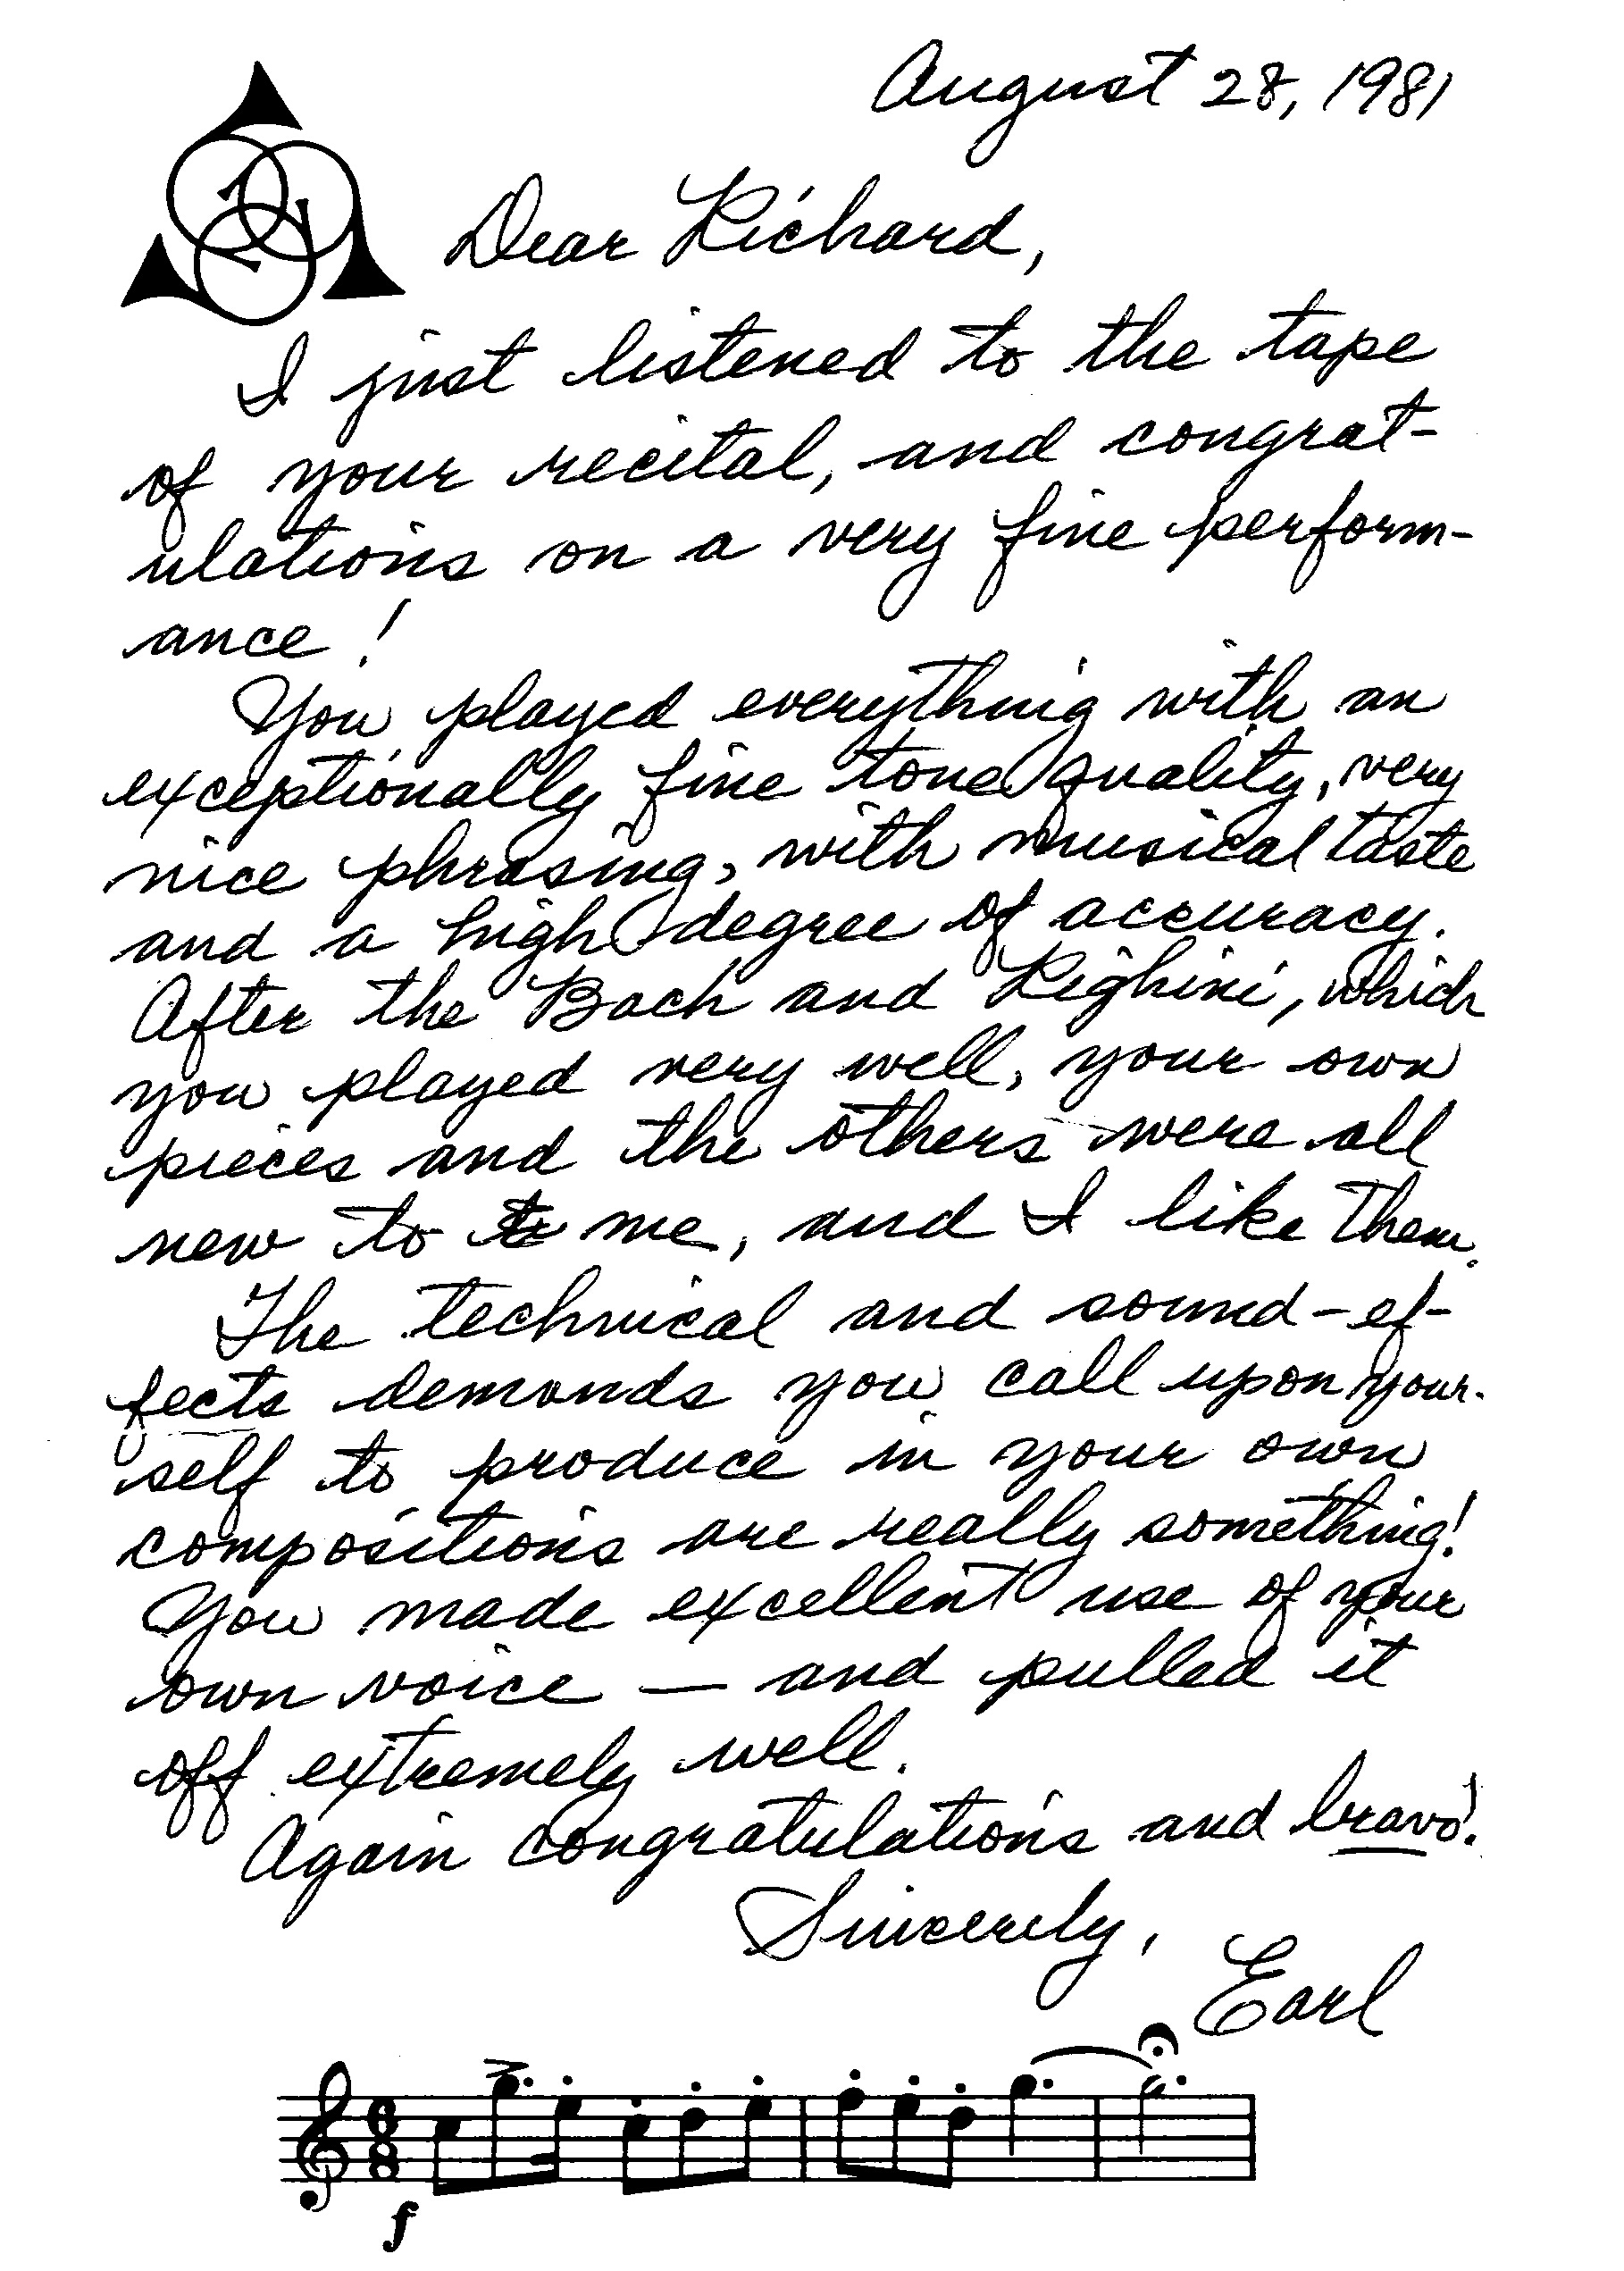 August 28, 1981
Dear Richard,
I just listened to the tape
of your recital, and congrat-
ulations on a very fine perform-
ance!
You played everything with an
exceptionally fine tone quality, very
nice phrasing, with musical taste
and a high degree of accuracy.
After the Bach and Righini, which
you played very well, your own
pieces and the others were all
new to me, and I like them.
The technical and sound-ef-
fects demands you call upon your-
self to produce in your own
compositions are really something!
You made excellent use of your
own voice — and pulled it
off extremely well.
Again congratulations and bravo!
Sincerely,
Earl
6
8
f